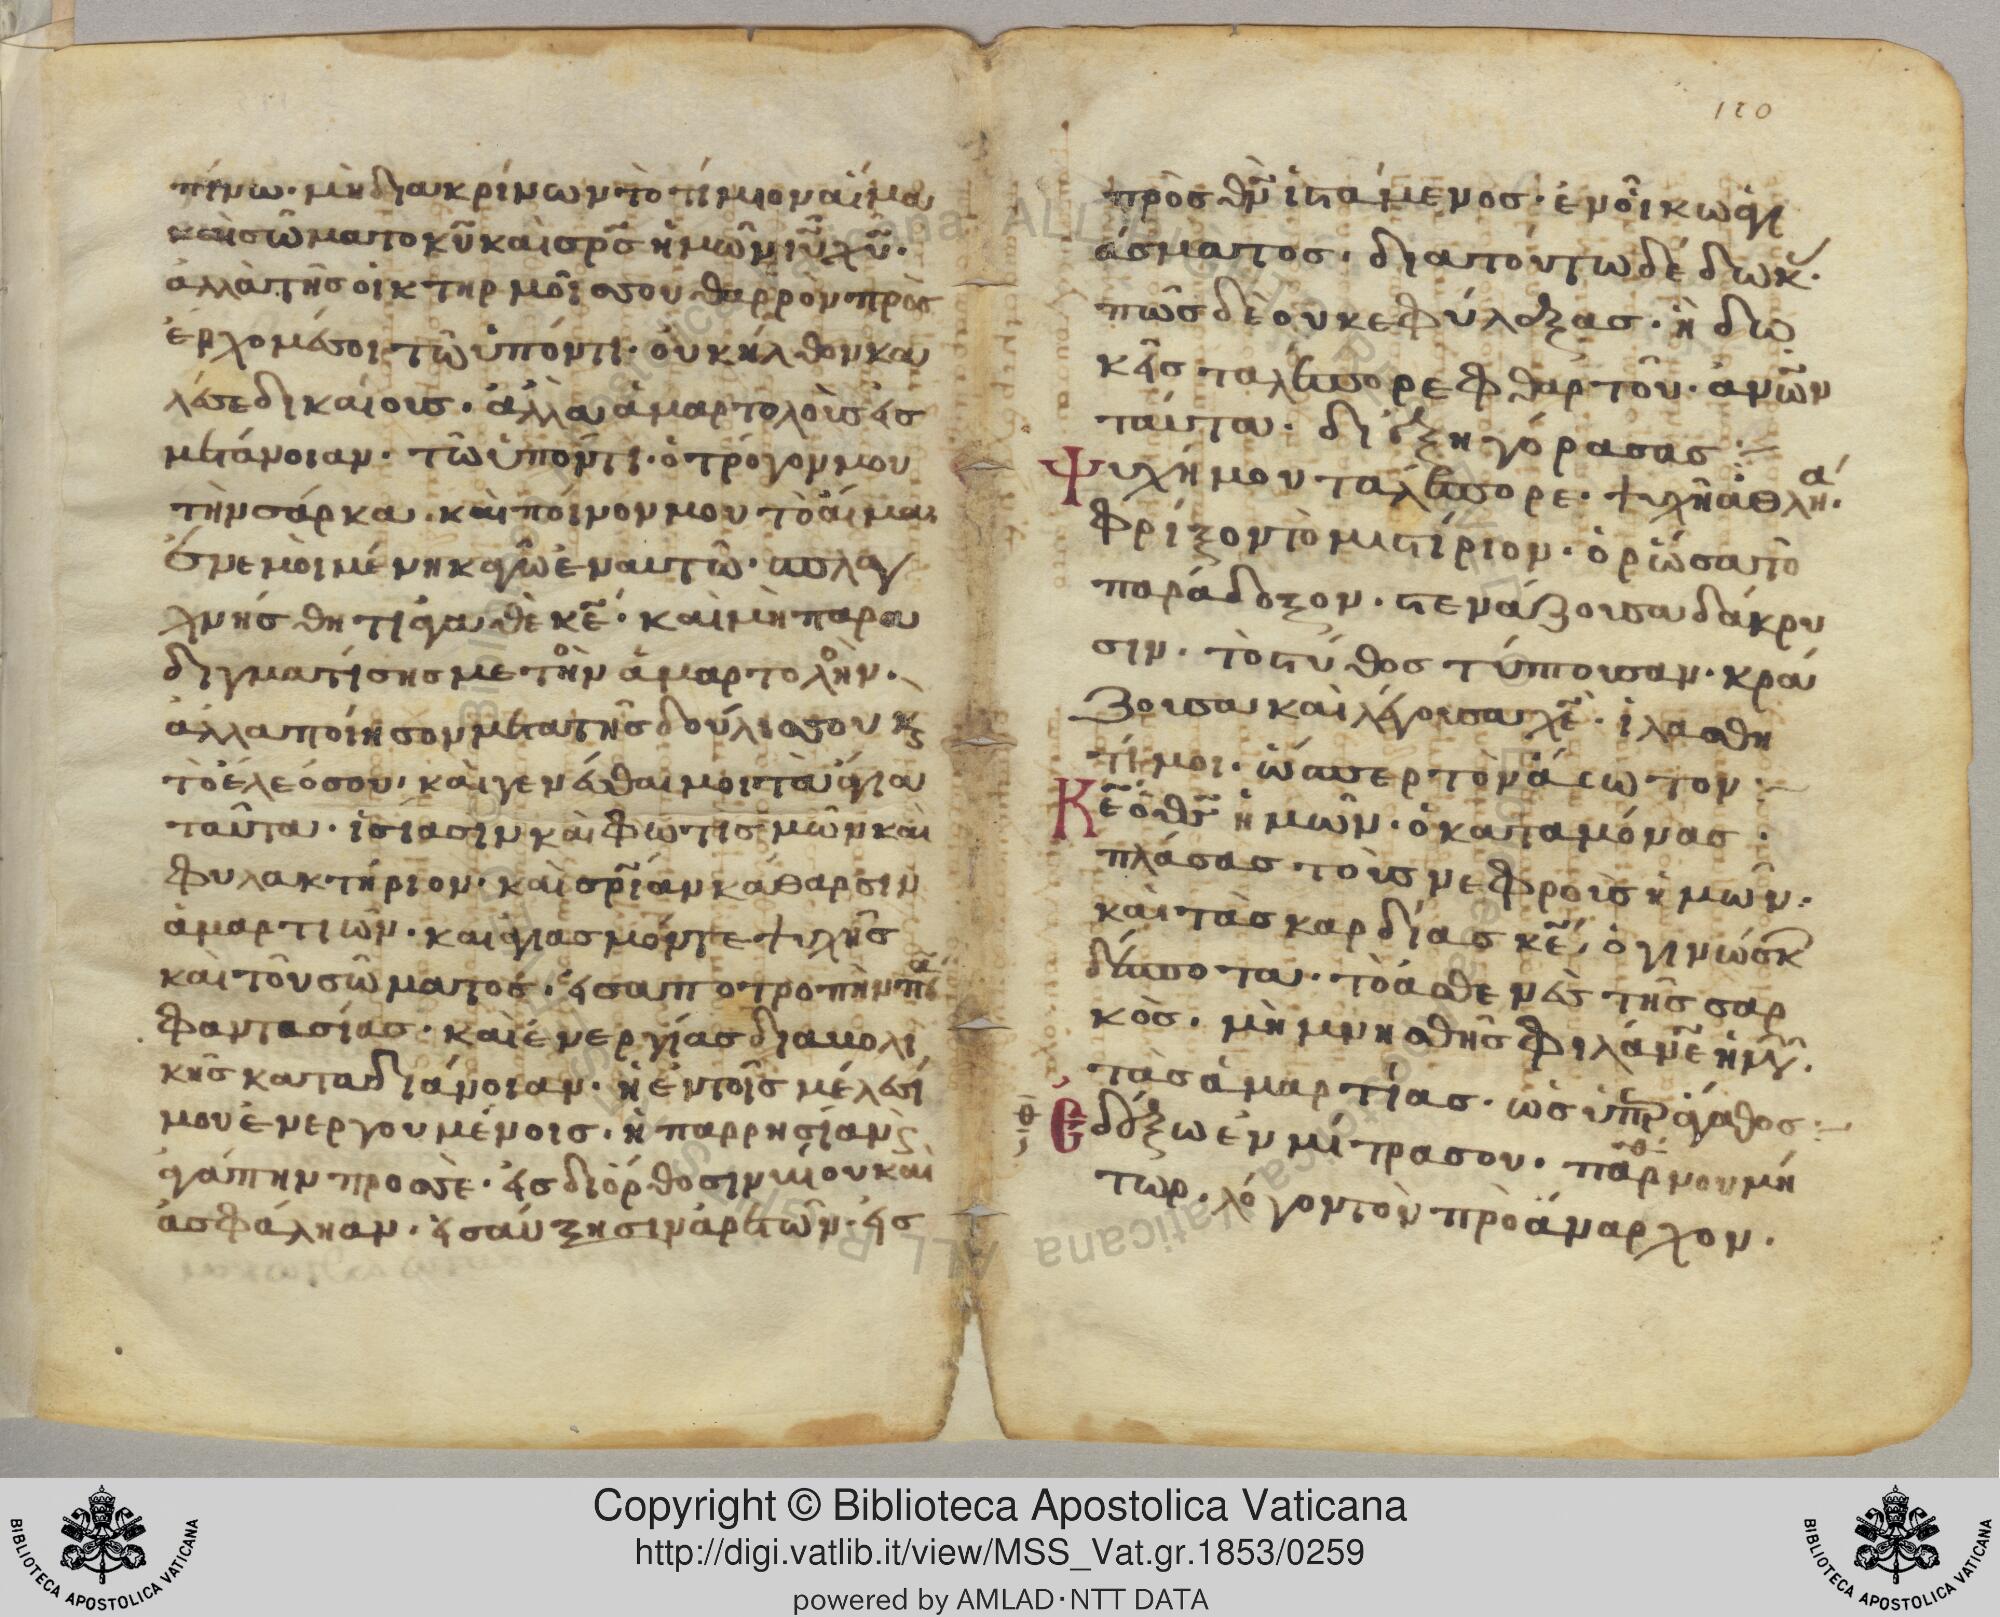 πίνω· μὴ διακρίνων τὸ τίμιον αἵμα
καὶ σῶμα το κῦ καὶ σρς ἡμῶν ιῦ χῦ·
ἀλλὰ τῆς οἰκτηρμοῖς σου θαρρὸν πρὸς
ἐρχομέ σοι τῶ ὑπόντι· ὀυκ ἦλθον κα
λέσε δικαίους· ἀλλὰ ἁμαρτολοὺς εἰς
μετάνοιαν· τῶ ὑπόντι· ὁ τρόγον μου
τὴν σάρκα· καὶ πόινον μου τὸ αἵμα
ἐν ἐμὸι μένη κἀγῶ ἐν αυτῶ· σπλαγ
χνήσθητι ἀγαθὲ κε· καὶ μὴ παρα
διγματίσης με τὸν ἁμαρτολόν·
ἀλλα ποίησον μετα τῆς δούλις σου κς
τὸ ἐλεόσου· καὶ γενέσθαι μοι τὰ ἅγια
ταῦτα· ἱσίασιν καὶ φωτισμῶν καὶ
φυλακτήριον· καὶ σρίαν κάθαρσιν
ἁμαρτιῶν· καὶ ἁγιασμόν τε ψυχῆς
καὶ τοῦ σῶματος· εἰς αποτροπὴν πάς
φαντασίας· καὶ ἐνεργίας διαυολι
κῆς κατα διάνοιαν· ἢ ἐν τοῖς μέλεσί
μου ἐνεργουμένοις· ἢ παρρησίαν κς
ἀγάπην προσσὲ· εἰς διόρθοσιν υίου καὶ
ἀσφάληαν· εἰς αύξησιν ἀρετῶν· εἰς
150
πρὸς θν ἱστάμενος· ἐν οἴκω ἁγι
άσματος· διαπόντω δέδωκ·
πῶς δὲ ουκ εφύλαξας· ἢ δω
κεῖς ταλέπορε φθαρτοῦ· ἀνῶν
ταύτα· δι ἐξηγόρασας
Ψυχή μου ταλέπορε· ψυχὴ ἀθλή α
φρίξον τὸ μιστίριον· ὁρίώσα τὸ
παράδοξον· στενάζουσα δάκρυ
σιν· τὸ στύθος τύπουσαν· κρά
ζουσα καὶ λέγουσα χε· ἱλασθη
τί μοι· ὡσπερ τὸν ἄσωτον
Κε ὁ θς ἡμῶν· ὁ καταμόνας
πλάσας τοὺς νεφροὺς ἡμῶν·
καὶ τὰς καρδίας κε, ὁ γινώσκ
δέσποτα· τὸ ἀσθενὲς τῆς σαρ
κὸς· μὴ μνησθῆς φιλάνε ἡμ
τὰς ἁμαρτίας· ὡς ὑπρ ἀγαθος
θ Ἐδέξω ἐν μίτρα σου· παρθνου μή
τωρ· λόγον τὸν πρὸ ἄναρχον·
Copyright © Biblioteca Apostolica Vaticana
http://digi.vatlib.it/view/MSS_Vat.gr.1853/0259
powered by AMLAD·NTT DATA
BIBLIOTECA APOSTOLICA VATICANA
BIBLIOTECA APOSTOLICA VATICANA